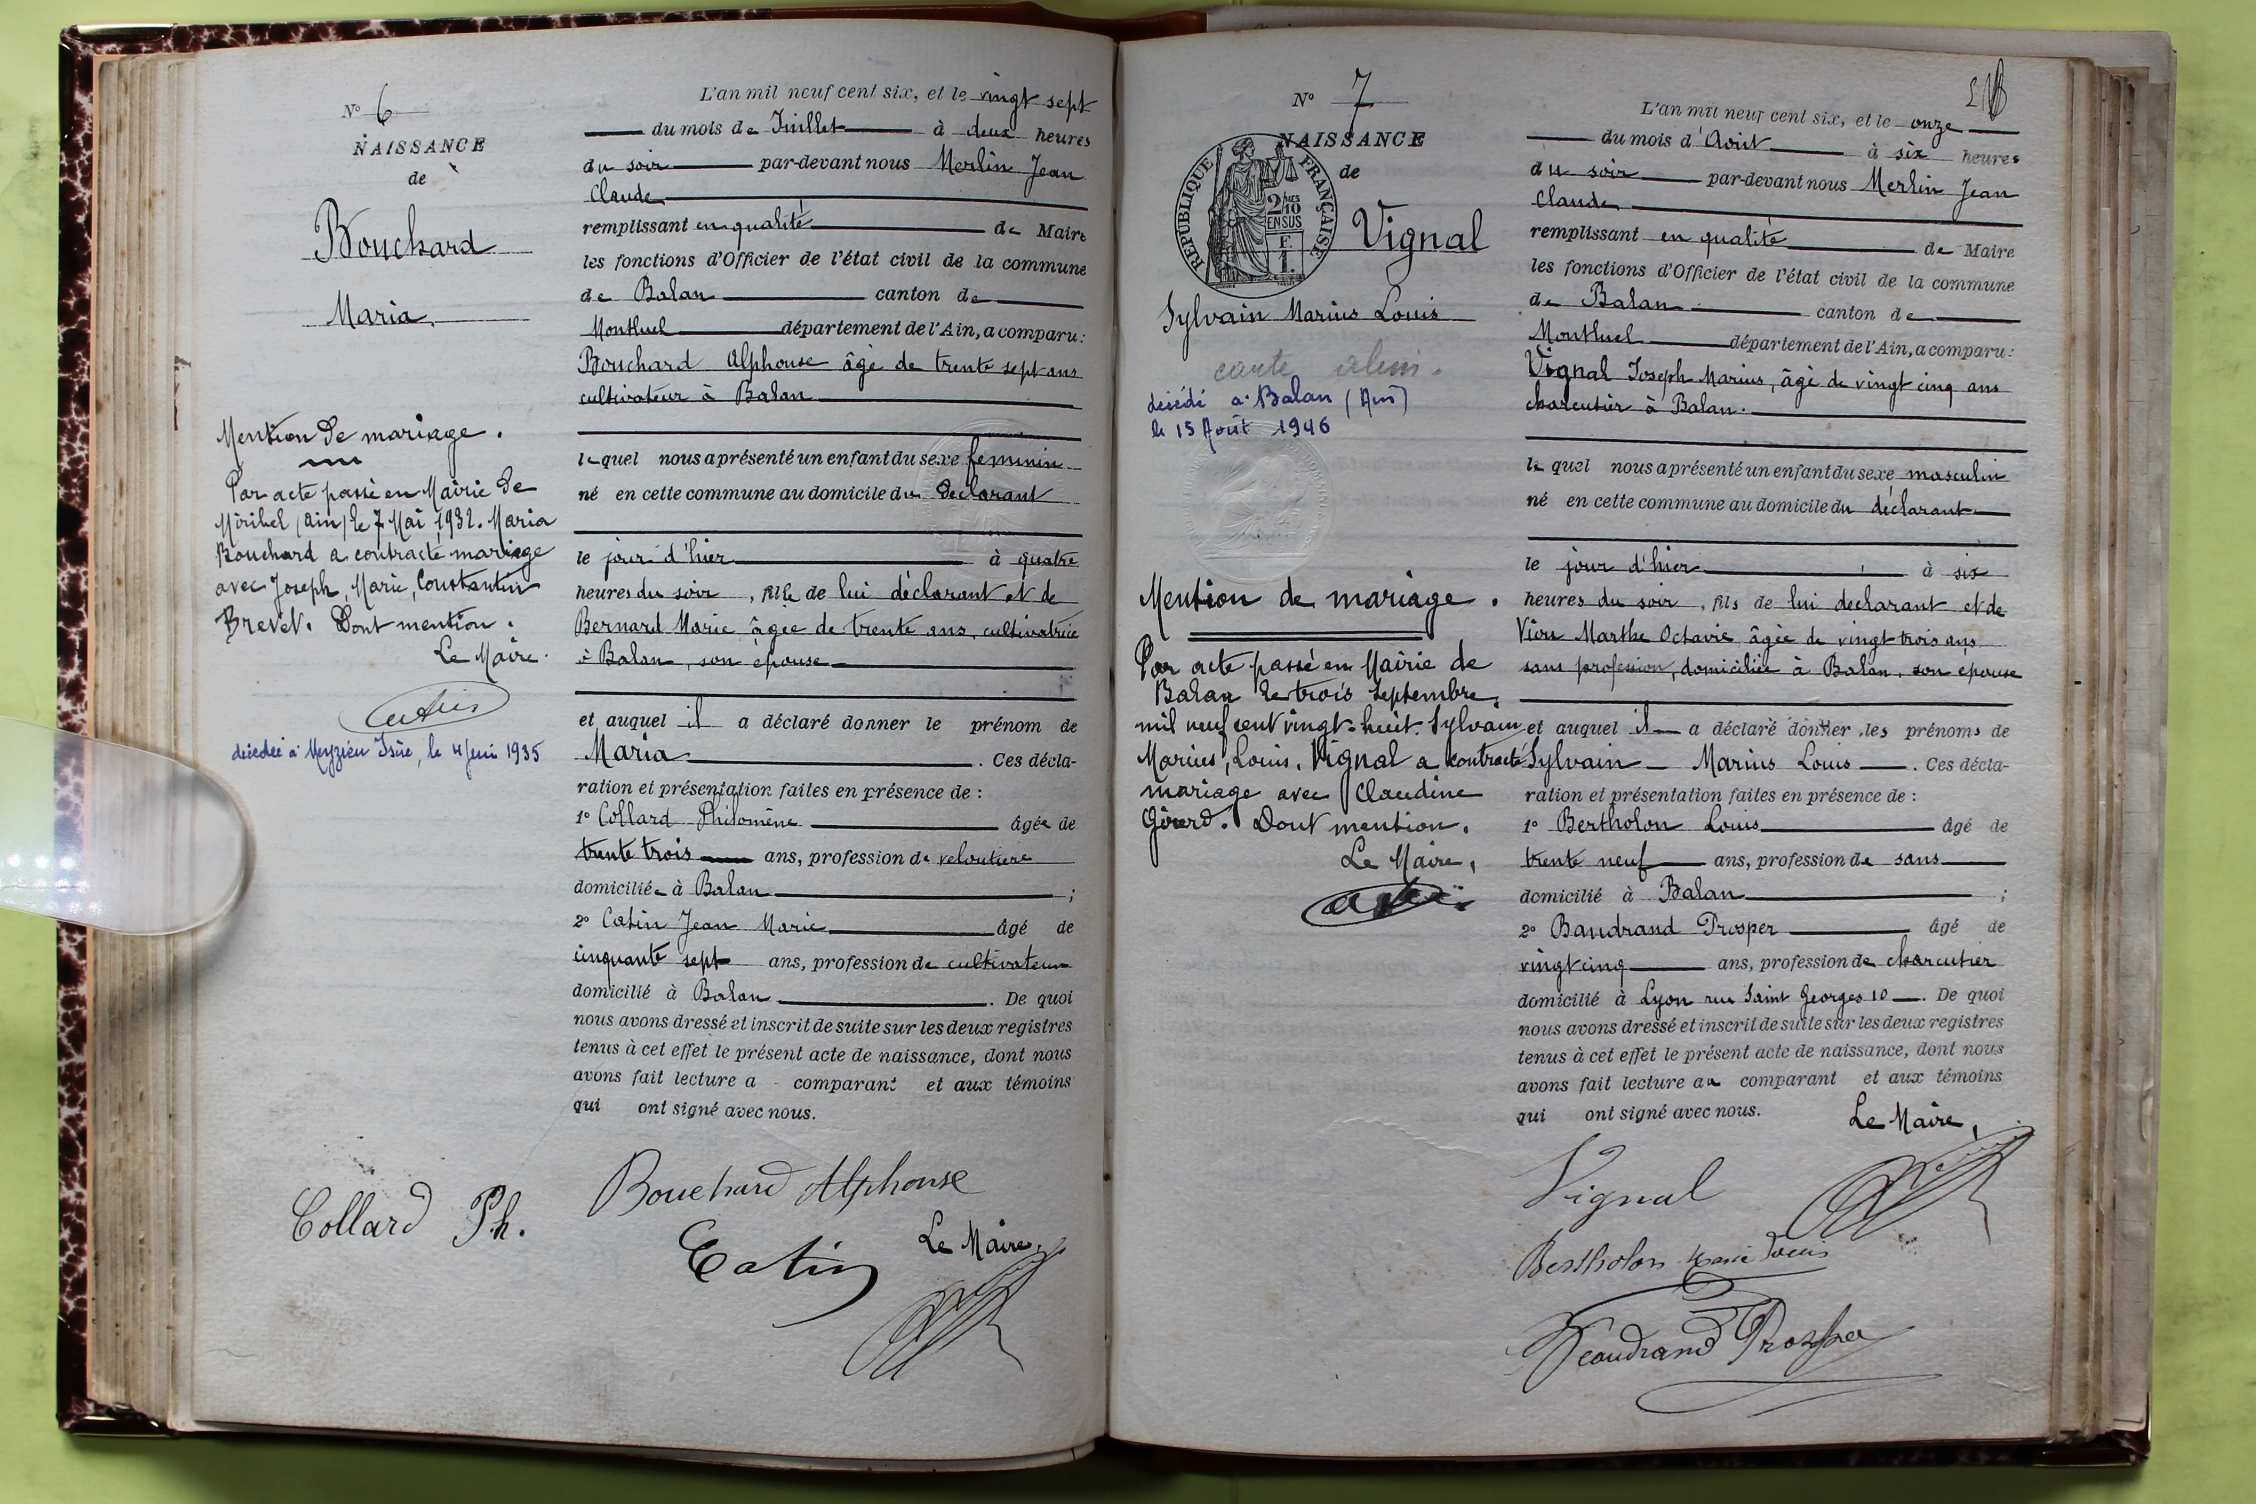 N° 6
NAISSANCE
de
Bouchard
Maria
Mention de mariage.
Par acte passé en Mairie de
Miribel (Ain) le 7 Mai 1932. Maria
Bouchard a contracté mariage
avec Joseph, Marie, Constantin
Brevet. Dont mention.
Le Maire.
Catin
décédée à Meyzieu Isère, le 4 Juin 1935
L'an mil neuf cent six, et le vingt sept
du mois de Juillet à deux heures
du soir par-devant nous Merlin Jean
Claude
remplissant en qualité de Maire
les fonctions d'Officier de l'état civil de la commune
de Balan canton de
Montluel département de l'Ain, a comparu:
Bouchard Alphonse âgé de trente sept ans
cultivateur à Balan
lequel nous a présenté un enfant du sexe feminin
né en cette commune au domicile du déclarant
le jour d'hier à quatre
heures du soir, fille de lui déclarant et de
Bernard Marie âgée de trente ans, cultivatrice
à Balan, son épouse
et auquel il a déclaré donner le prénom de
Maria. Ces décla-
ration et présentation faites en présence de :
1° Collard Philomène âgée de
trente trois ans, profession de veloutière
domiciliée à Balan ;
2° Catin Jean Marie âgé de
cinquante sept ans, profession de cultivateur
domicilié à Balan. De quoi
nous avons dressé et inscrit de suite sur les deux registres
tenus à cet effet le présent acte de naissance, dont nous
avons fait lecture a comparant et aux témoins
qui ont signé avec nous.
Bouchard Alphonse
Collard Ph.
Catin
Le Maire,
N° 7
NAISSANCE
de
RÉPUBLIQUE FRANÇAISE
2/10 EN SUS
Vignal
Sylvain Marius Louis
carte
décédé à Balan (Ain)
le 15 Août 1946
Mention de mariage.
Par acte passé en Mairie de
Balan le trois Septembre
mil neuf cent vingt-huit. Sylvain
Marius, Louis, Vignal a contracté
mariage avec Claudine
Girerd. Dont mention.
Le Maire,
L'an mil neuf cent six, et le onze
du mois d'Août à six heures
du soir par-devant nous Merlin Jean
Claude
remplissant en qualité de Maire
les fonctions d'Officier de l'état civil de la commune
de Balan canton de
Montluel département de l'Ain, a comparu:
Vignal Joseph Marius, âgé de vingt cinq ans
charcutier à Balan.
lequel nous a présenté un enfant du sexe masculin
né en cette commune au domicile du déclarant
le jour d'hier à six
heures du soir, fils de lui déclarant et de
Vion Marthe Octavie âgée de vingt trois ans
sans profession, domiciliée à Balan, son épouse
et auquel il a déclaré donner les prénoms de
Sylvain Marius Louis. Ces décla-
ration et présentation faites en présence de :
1° Bertholon Louis âgé de
trente neuf ans, profession de sans
domicilié à Balan ;
2° Baudrand Prosper âgé de
vingt cinq ans, profession de charcutier
domicilié à Lyon rue Saint Georges 10. De quoi
nous avons dressé et inscrit de suite sur les deux registres
tenus à cet effet le présent acte de naissance, dont nous
avons fait lecture au comparant et aux témoins
qui ont signé avec nous.
Le Maire,
Vignal
Bertholon Marie Louis
Beaudrand Prosper